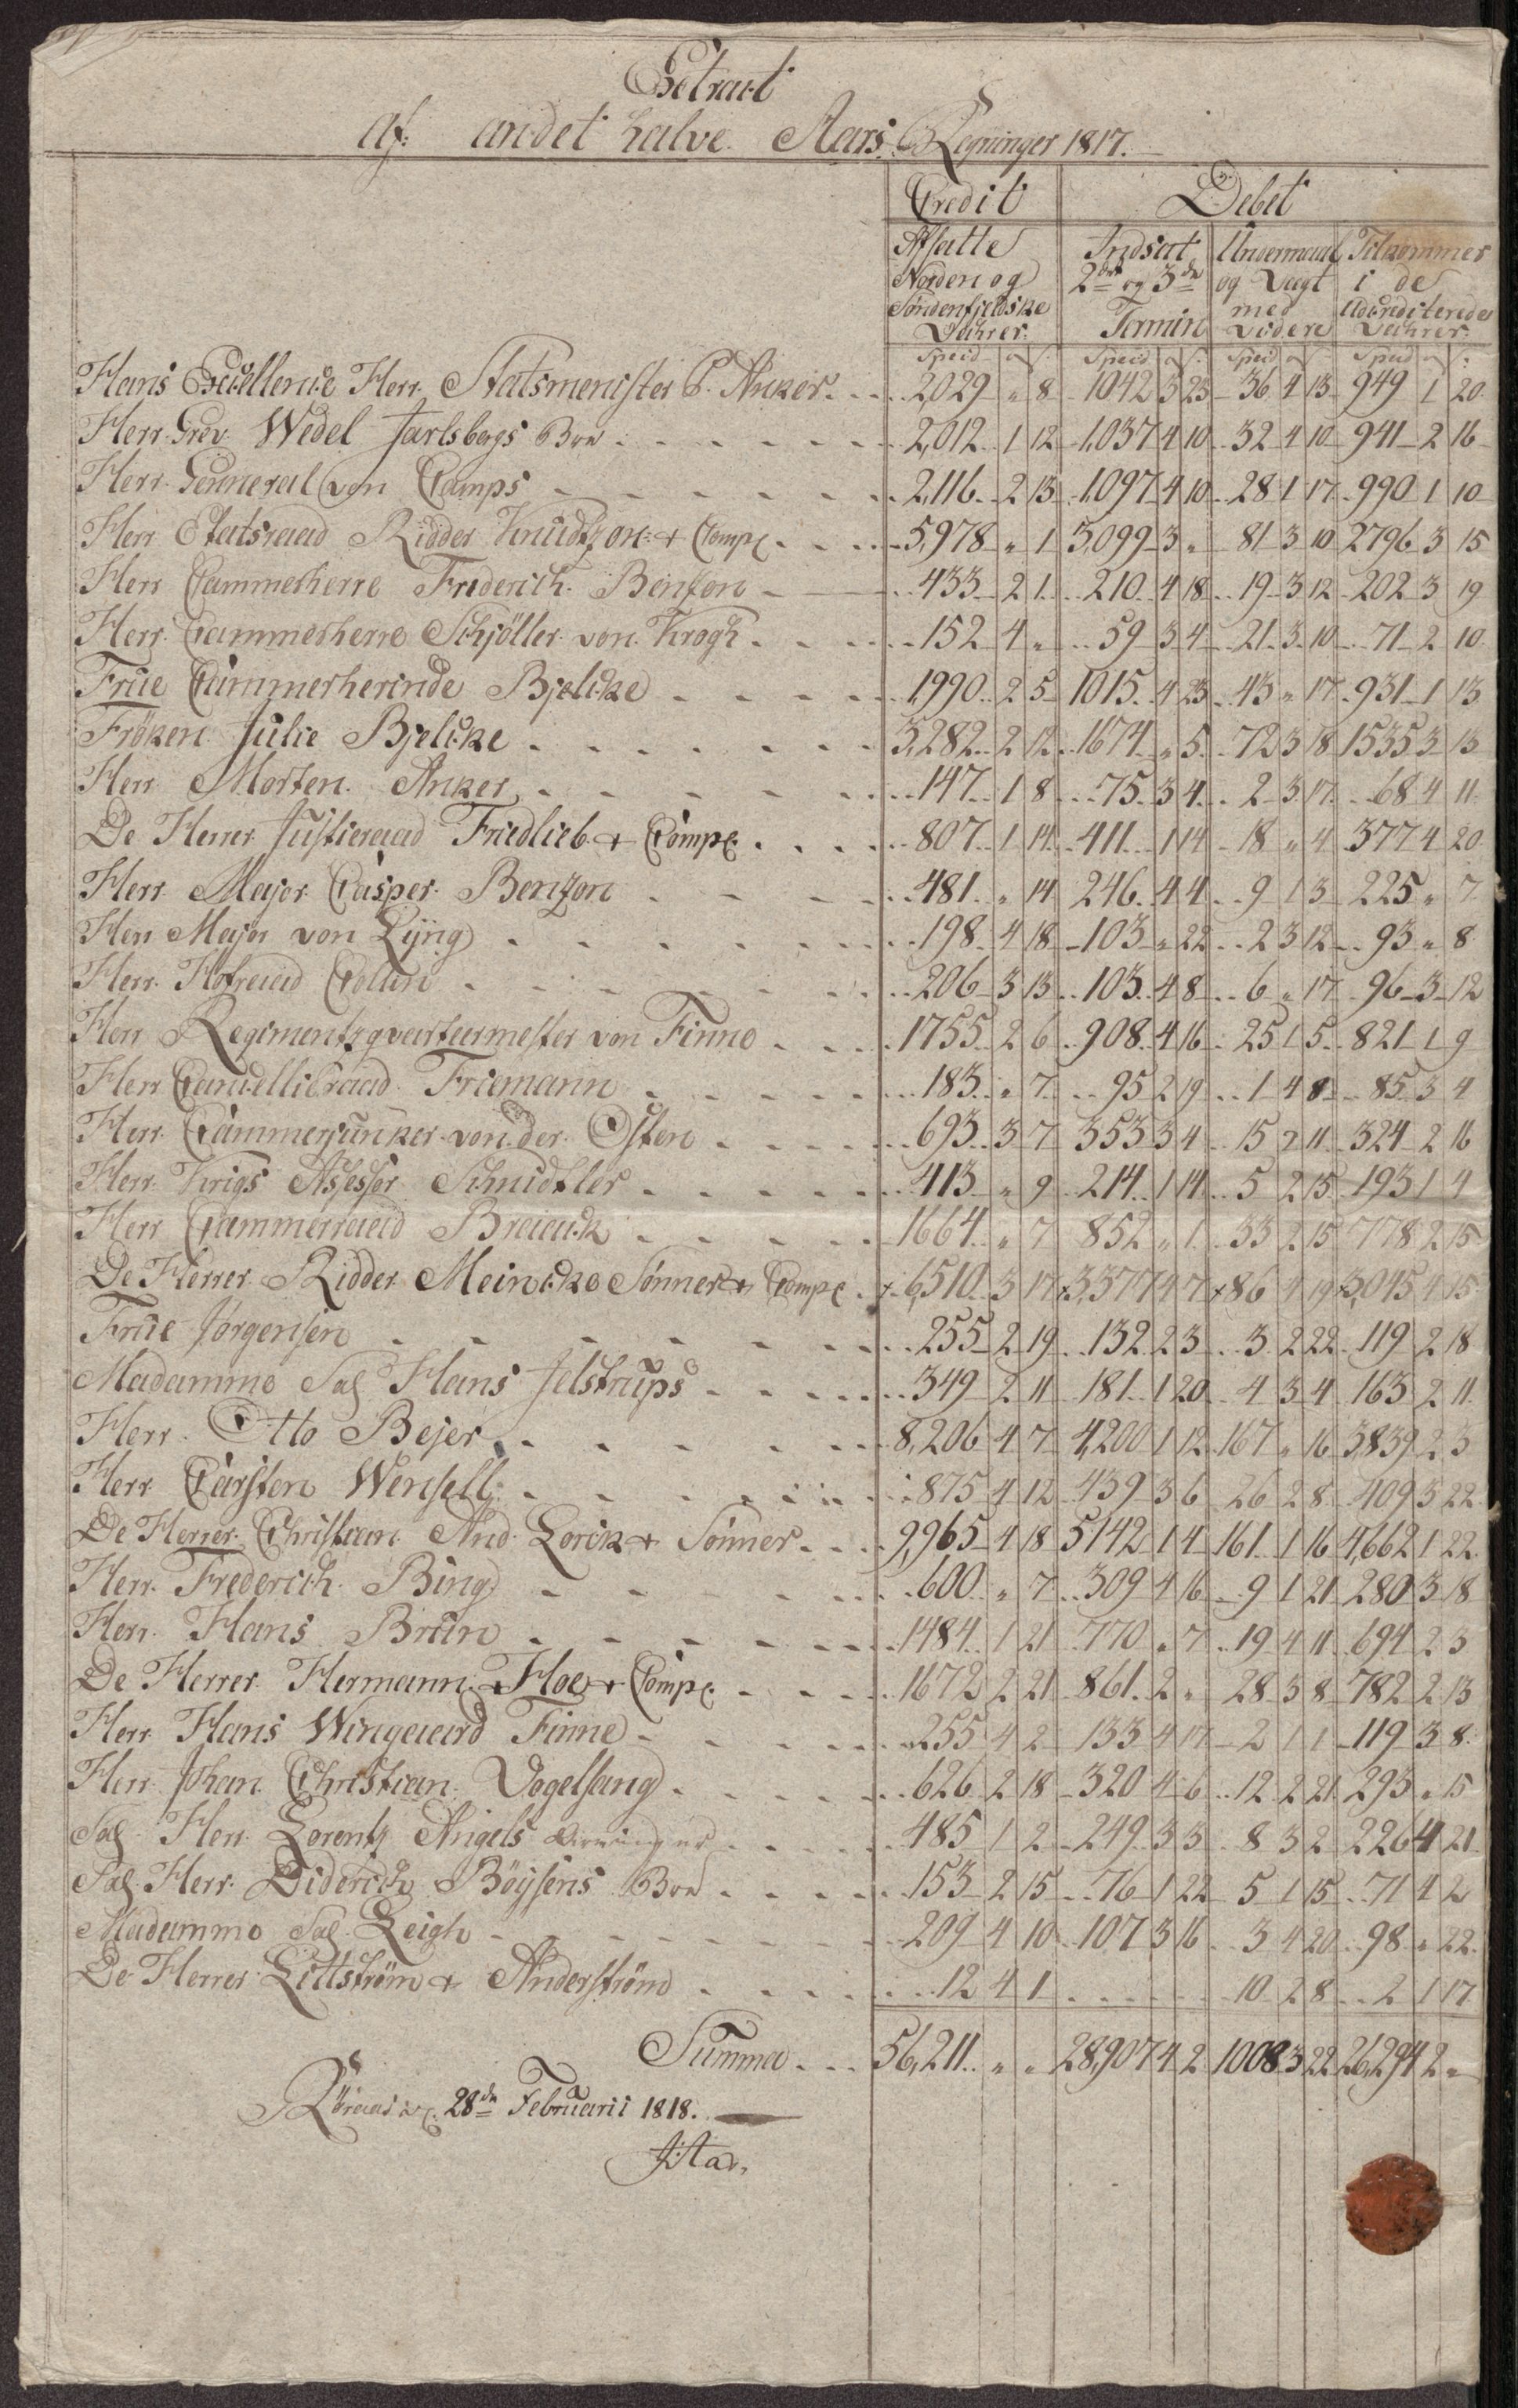 Extract
af: andet halve Aars Regninger 1817.
Credit Debet
Afsatte Indsat Undermaal Tilkommer
Norden og 2den og 3die og Vægt i de
Søndenfjeldske Termin med Udcrediterede
Vahrer: videre Vahrer:
Specid β. Specid β. Specid β. Specid β.
Hans Excellence Herr Statsmenister P. Anker 2,029 " 8 1042 3 23 36 4 13 949 1 20
Herr Grev Wedel Jarlsbergs Boe 2,012 1 12 1,037 4 10 32 4 10 941 2 16
Herr Genneral von Camps 2,116 2 13 1,097 4 10 28 1 17 990 1 10
Herr Etatsraad Ridder Knudtzon & Comp. 5,978 " 1 3,099 3 " 81 3 10 2796 3 15
Herr Cammerherre Frederich Benzon 433 2 1 210 4 18 19 3 12 202 3 19
Herr Cammerherre Schjöller von Krogh 152 4 " 59 3 4 21 3 10 71 2 10
Frue Cammerherinde Bjelcke 1990 2 5 1015 4 23 43 " 17 931 1 13
Fröken Julie Bjelcke 3,282 2 12 1674 " 5 72 3 18 1535 3 13
Herr Morten Anker 147 1 8 75 3 4 2 3 17 68 4 11
De Herrer Justicraad Friedlieb & Comp. 807 1 14 411 1 14 18 " 4 377 4 20
Herr Major Casper Benzon 481 " 14 246 4 4 9 1 3 225 " 7
Herr Major von Lÿng 198 4 18 103 " 22 2 3 12 93 " 8
Herr Hofraad Collin 206 3 13 103 4 8 6 " 17 96 3 12
Herr Regimentzqvarteermester von Finne 1755 2 6 908 4 16 25 1 5 821 1 9
Herr Cancelliraad Friemann 183 " 7 95 2 19 1 4 8 85 3 4
Herr Cammerjunker von der Osten 693 3 7 353 3 4 15 2 11 324 2 16
Herr Krigs Assessor Schmidtler 413 " 9 214 1 14 5 2 15 193 1 4
Herr Cammerraad Braack 1664 " 7 852 " 1 33 2 15 778 2 15
De Herrer Ridder Meincke Sönner & Comp. + 6,510 3 17 + 3,377 4 7 + 86 4 19 + 3,045 4 15
Frue Jørgensen 255 2 19 132 2 3 3 2 22 119 2 18
Madamme Sal. Hans Jelstrups 349 2 11 181 1 20 4 3 4 163 2 11
Herr Otto Bejer 8,206 4 7 4,200 1 12 167 " 16 3839 2 3
Herr Carsten Wensell 875 4 12 439 3 6 26 2 8 409 3 22
De Herrer Christian And. Lorck & Sönner 9,965 4 18 5142 1 4 161 1 16 4,662 1 22
Herr Frederich Bing 600 " 7 309 4 16 9 1 21 280 3 18
Herr Hans Bruun 1484 1 21 770 " 7 19 4 11 694 2 3
De Herrer Hermann Hoe & Comp. 1672 2 21 861 2 " 28 3 8 782 2 13
Herr Hans Wingaard Finne 255 4 2 133 4 17 2 1 1 119 3 8
Herr Johan Christian Vogelsang 626 2 18 320 4 6 12 2 21 293 " 15
Sal. Herr Lorentz Angels 485 1 2 249 3 3 8 3 2 226 4 21
Sal. Herr Diderich Böÿsens Boe 153 2 15 76 1 22 5 1 15 71 4 2
Madamme Sal. Leigh 209 4 10 107 3 16 3 4 20 98 " 22
De Herrer Littström & Anderström 12 4 1 10 2 8 2 1 17
Summa 56,211 " " 28,907 4 2 1008 3 22 26,294 2 "
Röraas 28de Februarii 1818.